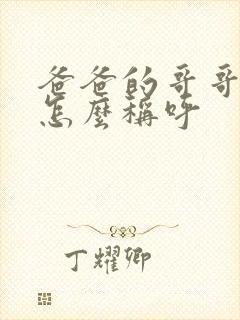 爸爸的哥哥
怎麼稱呼
丁耀卿